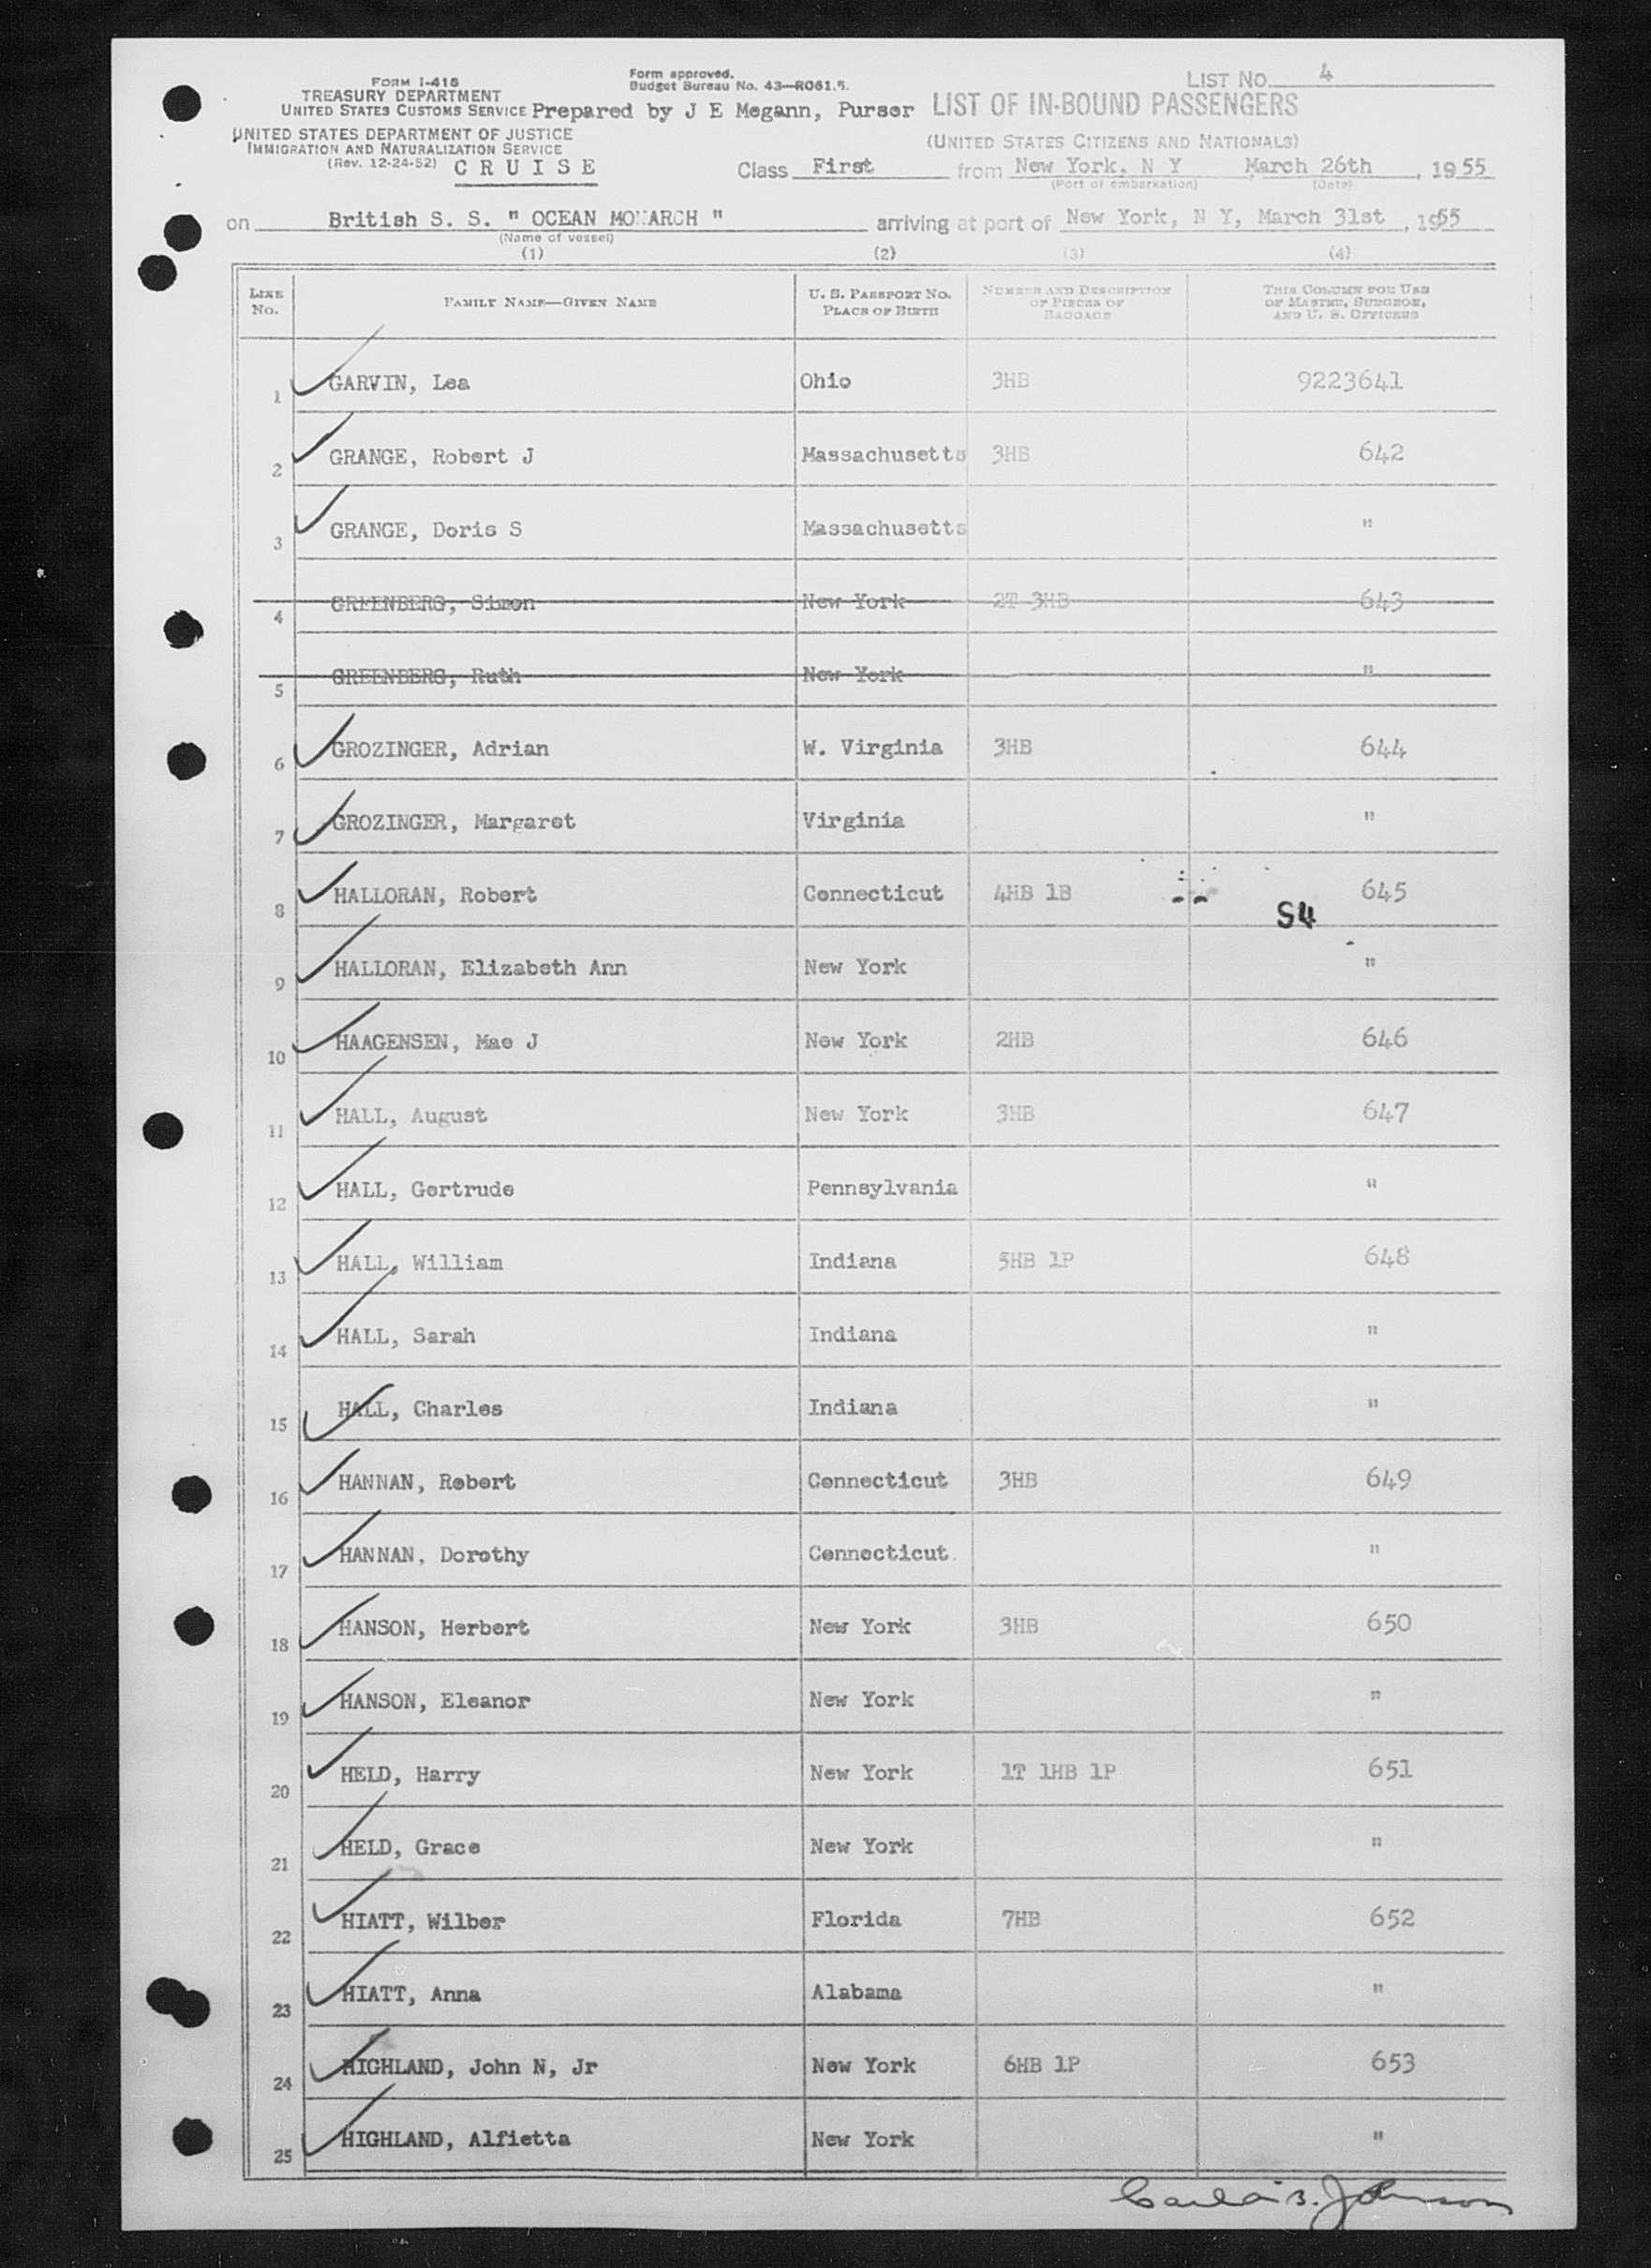 FORM I-418
TREASURY DEPARTMENT
UNITED STATES CUSTOMS SERVICE
UNITED STATES DEPARTMENT OF JUSTICE
IMMIGRATION AND NATURALIZATION SERVICE
(Rev. 12-24-52) CRUISE
Form approved.
Budget Bureau No. 43—R061.5.
Prepared by J E Megann, Purser
LIST NO. 4
LIST OF IN-BOUND PASSENGERS
(UNITED STATES CITIZENS AND NATIONALS)
Class First from New York, N Y March 26th, 1955
(Port of embarkation) (Date)
on British S. S. " OCEAN MONARCH " arriving at port of New York, N Y, March 31st, 1955
(Name of vessel)
(1) (2) (3) (4)
LINE No. FAMILY NAME—GIVEN NAME U. S. PASSPORT NO. PLACE OF BIRTH NUMBER AND DESCRIPTION OF PIECES OF BAGGAGE THIS COLUMN FOR USE OF MASTER, SURGEON, AND U. S. OFFICERS
1 GARVIN, Lea Ohio 3HB 9223641
2 GRANGE, Robert J Massachusetts 3HB 642
3 GRANGE, Doris S Massachusetts "
4 GREENBERG, Simon New York 2T 3HB 643
5 GREENBERG, Ruth New York "
6 GROZINGER, Adrian W. Virginia 3HB 644
7 GROZINGER, Margaret Virginia "
8 HALLORAN, Robert Connecticut 4HB 1B 645
S4
9 HALLORAN, Elizabeth Ann New York "
10 HAAGENSEN, Mae J New York 2HB 646
11 HALL, August New York 3HB 647
12 HALL, Gertrude Pennsylvania "
13 HALL, William Indiana 5HB 1P 648
14 HALL, Sarah Indiana "
15 HALL, Charles Indiana "
16 HANNAN, Robert Connecticut 3HB 649
17 HANNAN, Dorothy Connecticut. "
18 HANSON, Herbert New York 3HB 650
19 HANSON, Eleanor New York "
20 HELD, Harry New York 1T 1HB 1P 651
21 HELD, Grace New York "
22 HIATT, Wilber Florida 7HB 652
23 HIATT, Anna Alabama "
24 HIGHLAND, John N, Jr New York 6HB 1P 653
25 HIGHLAND, Alfietta New York "
B. Johnson